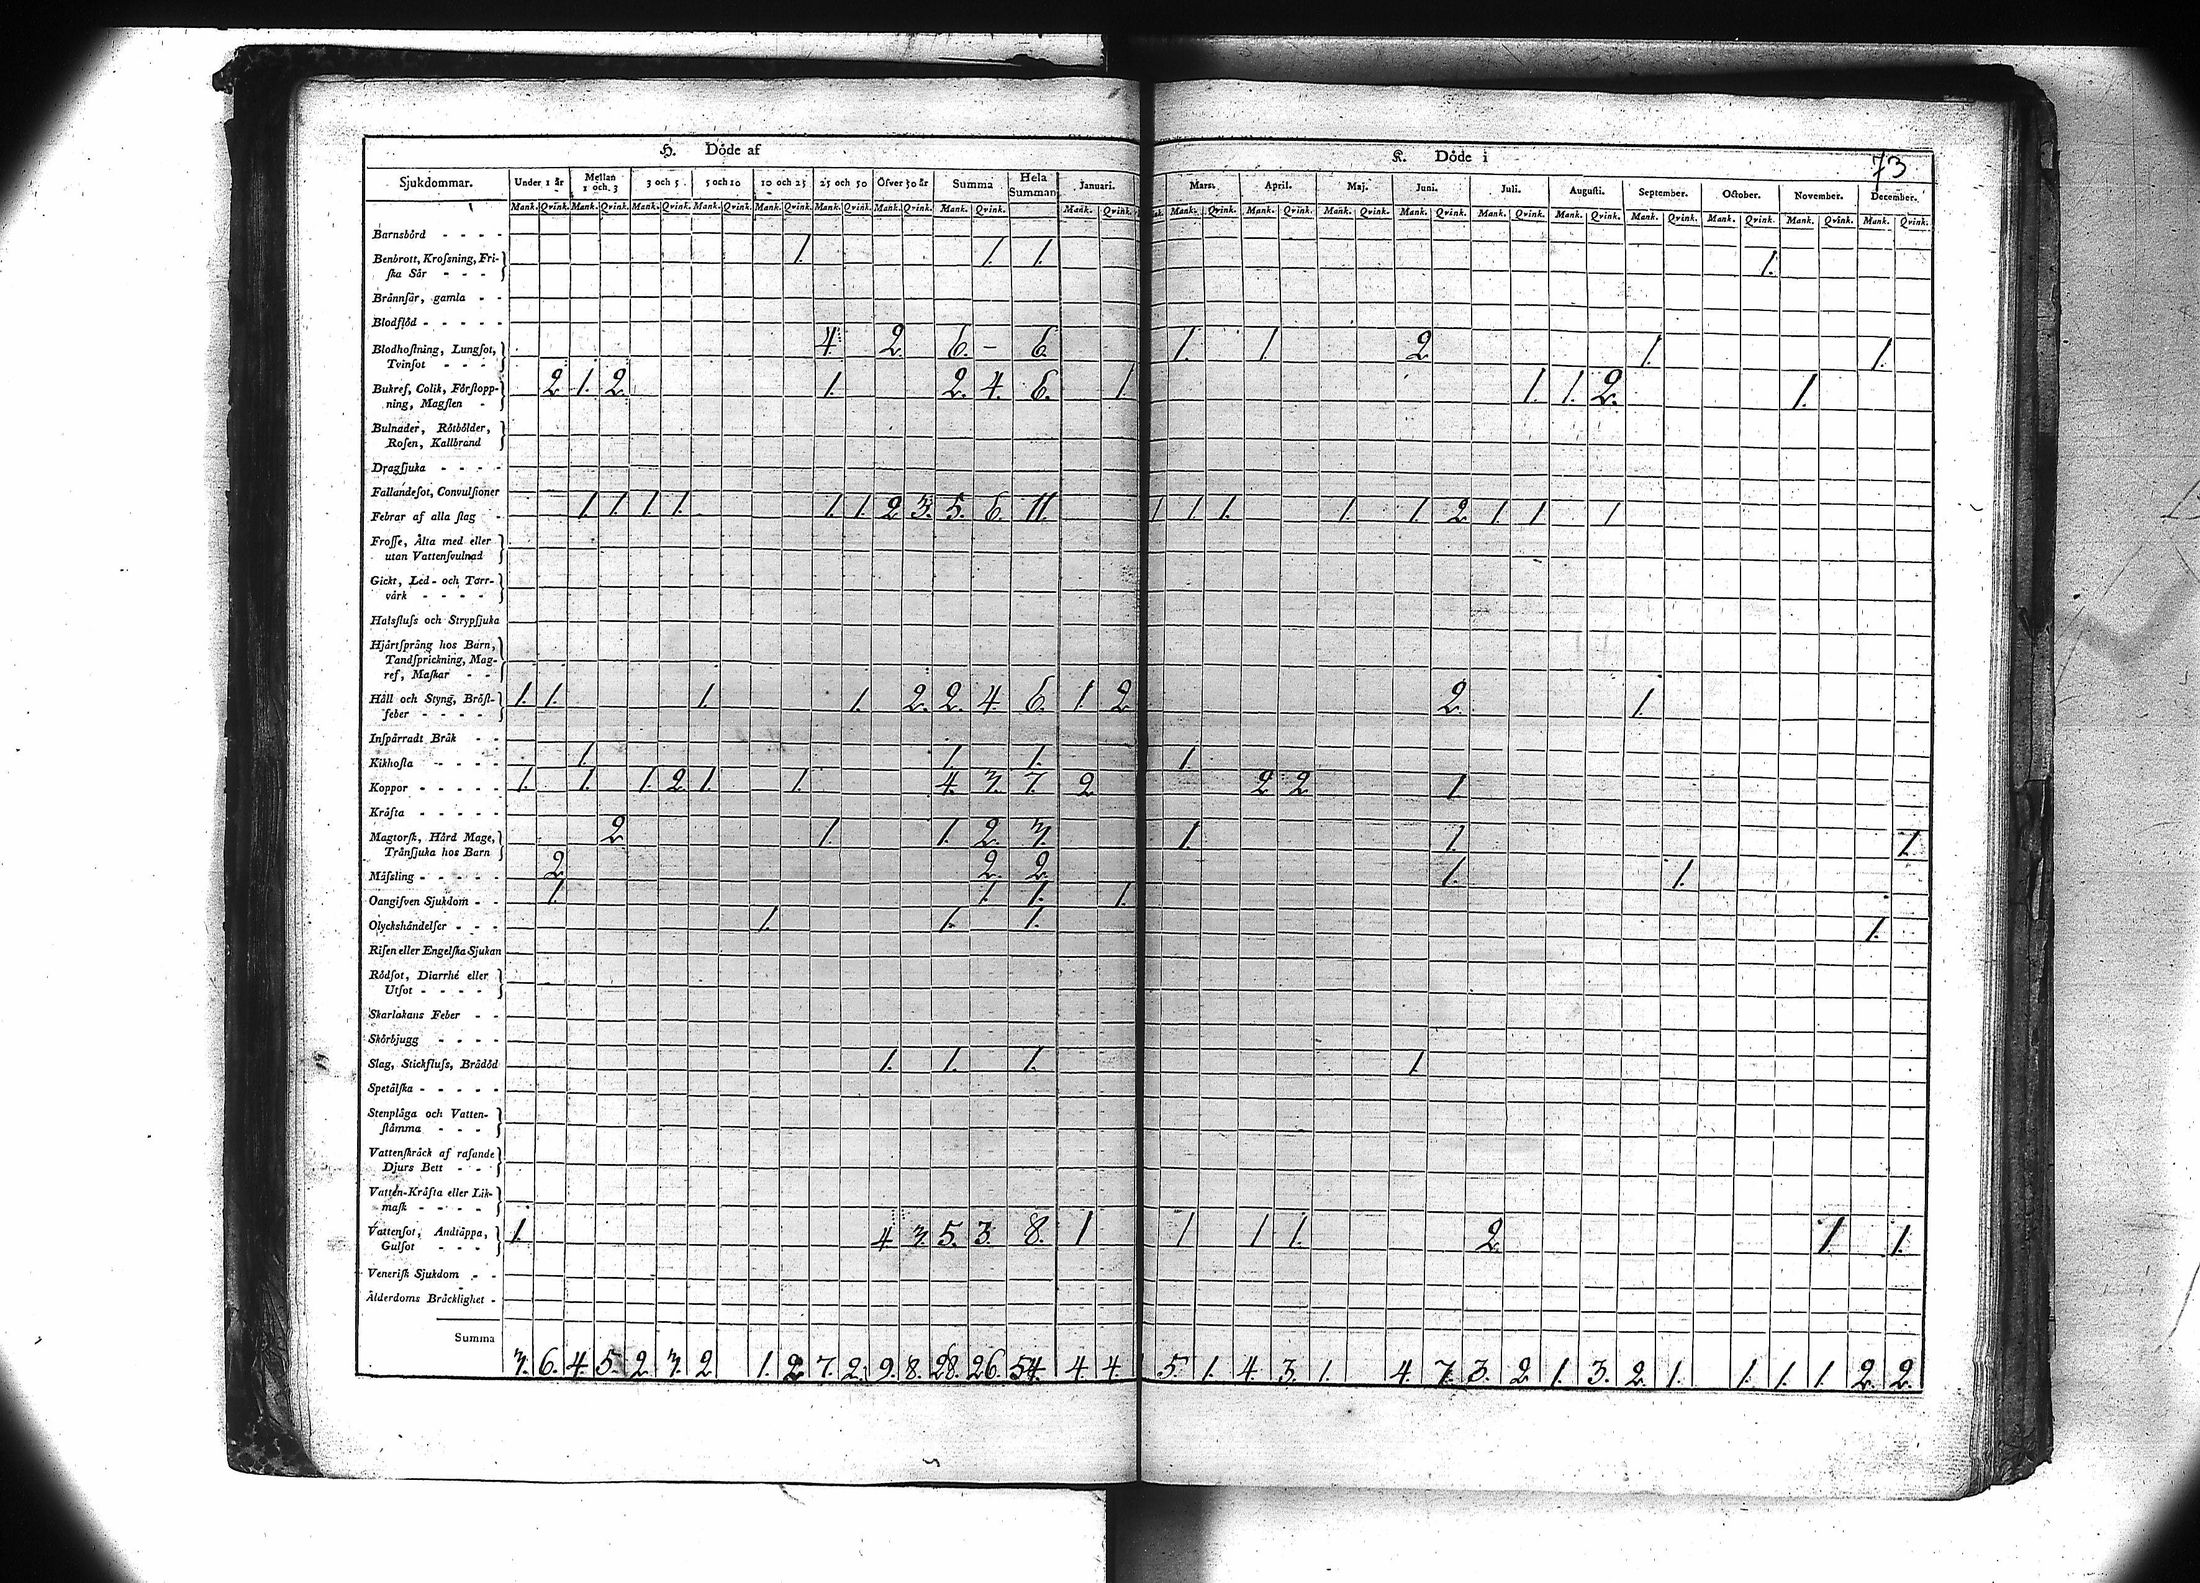 73
H. Döde af
K. Döde i
Sjukdommar. Under 1 år Mellan 1 och 3 3 och 5 5 och 10 10 och 25 25 och 50 Öfver 50 år Summa Hela Summan Januari. Mars. April. Maj. Juni. Juli. Augusti. September. October. November. December.
Mank. Qvink. Mank. Qvink. Mank. Qvink. Mank. Qvink. Mank. Qvink. Mank. Qvink. Mank. Qvink. Mank. Qvink. Mank. Qvink. Mank. Qvink. Mank. Qvink. Mank. Qvink. Mank. Qvink. Mank. Qvink. Mank. Qvink. Mank. Qvink. Mank. Qvink. Mank. Qvink. Mank. Qvink.
Barnsbörd
Benbrott, Krosning, Fri- 1. 1. 1. 1.
ska Sår
Brännsår, gamla
Blodflöd
Blodhostning, Lungsot, 4. 2 6. – 6. 1. 1. 2 1. 1.
Tvinsot
Bukref, Colik, Förstopp- 2 1. 2 1. 2. 4. 6. 1. 1. 1. 2. 1.
ning, Magsten
Bulnader, Rötbölder,
Rosen, Kallbrand
Dragsjuka
Fallandesot, Convulsioner
Febrar af alla slag 1. 1. 1. 1. 1. 1. 2 3. 5. 6. 11. 1 1. 1. 1. 1. 2 1. 1. 1.
Frosse, Älta med eller
utan Vattensvulnad
Gickt, Led- och Torr-
värk
Halsfluss och Strypsjuka
Hjärtsprång hos Barn,
Tandsprickning, Mag-
ref, Maskar
Håll och Styng, Bröst- 1. 1. 1. 1. 2. 2. 4. 6. 1. 2 2. 1.
feber
Inspärradt Bråk
Kikhosta 1. 1. 1. 1.
Koppor 1. 1. 1. 2 1. 1. 4. 3. 7. 2 2 2 1.
Kräfta
Magtorsk, Hård Mage, 2 1. 1. 2. 3. 1. 1. 1.
Tränsjuka hos Barn
Mässling 2 2. 2. 1. 1.
Oangifven Sjukdom 1. 1. 1. 1.
Olyckshändelser 1. 1. 1. 1.
Risen eller Engelska Sjukan
Rödsot, Diarrhé eller
Utsot
Skarlakans Feber
Skörbjugg
Slag, Stickfluss, Brådöd 1. 1. 1. 1.
Spetälska
Stenplåga och Vatten-
stämma
Vattenskräck af rasande
Djurs Bett
Vatten-Kräfta eller Lik-
mask
Vattensot, Andtäppa, 1. 4. 3. 5. 3. 8. 1 1 1 1. 2. 1. 1.
Gulsot
Venerisk Sjukdom
Ålderdoms Bräcklighet
Summa 3. 6. 4. 5. 2. 3. 2 1. 2 7. 2. 9. 8. 28. 26. 54. 4. 4. 5. 1. 4. 3. 1. 4. 7. 3. 2 1. 3. 2. 1. 1. 1. 1. 2. 2.